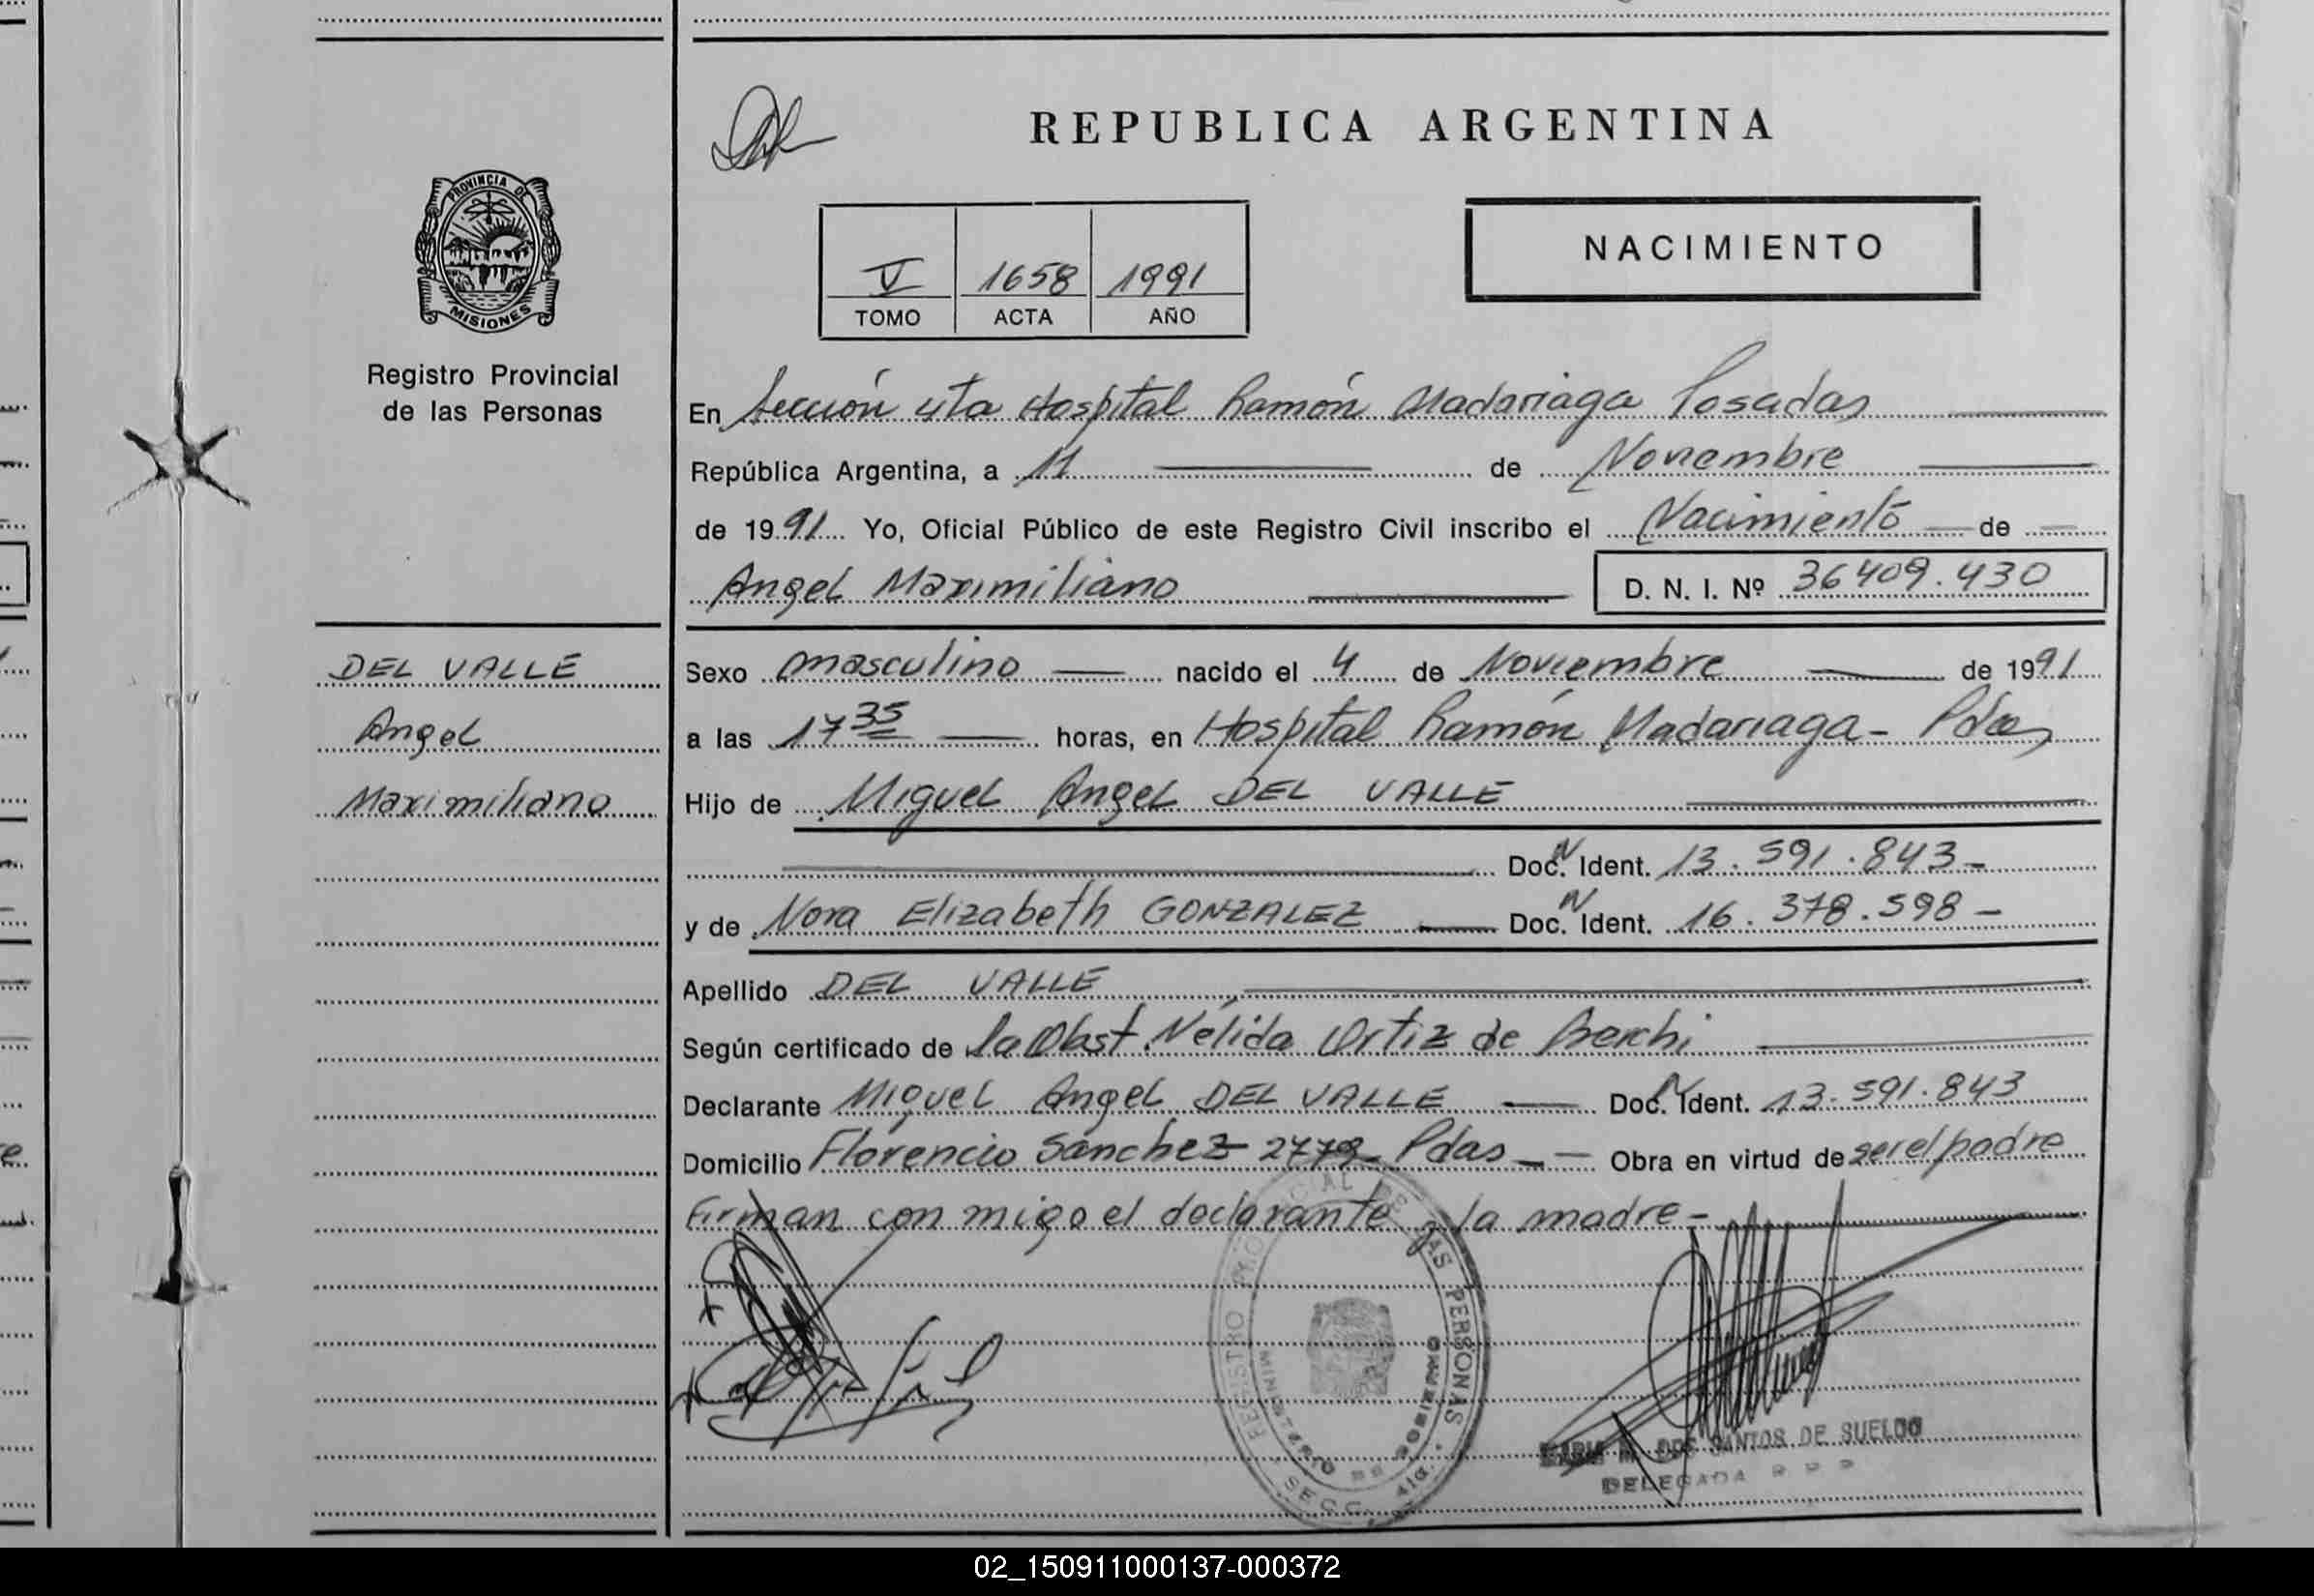 REPUBLICA ARGENTINA
PROVINCIA DE
MISIONES
Registro Provincial
de las Personas
V 1658 1991
TOMO ACTA AÑO
NACIMIENTO
En Sección 4ta Hospital Ramón Madariaga Posadas
República Argentina, a 11 de Noviembre
de 1991 Yo, Oficial Público de este Registro Civil inscribo el Nacimiento de
Angel Maximiliano D. N. I. Nº 36409.430
DEL VALLE
Angel
Maximiliano
Sexo masculino nacido el 4 de Noviembre de 1991
a las 17 35 horas, en Hospital Ramón Madariaga - Pdas
Hijo de Miguel Angel DEL VALLE
Doc. N Ident. 13.591.843-
y de Nora Elizabeth GONZALEZ Doc. N Ident. 16.378.598-
Apellido DEL VALLE
Según certificado de la Obst. Nélida Ortiz de
Declarante Miguel Angel DEL VALLE Doc. N Ident. 13.591.843
Domicilio Florencio Sánchez Pdas - Obra en virtud de ser el padre
Firman con migo el declarante y la madre-
REGISTRO PROVINCIAL DE LAS PERSONAS
MINISTERIO DE GOBIERNO
SECC. 4ta.
DOS SANTOS DE SUELDO
DELEGADA
02_150911000137-000372